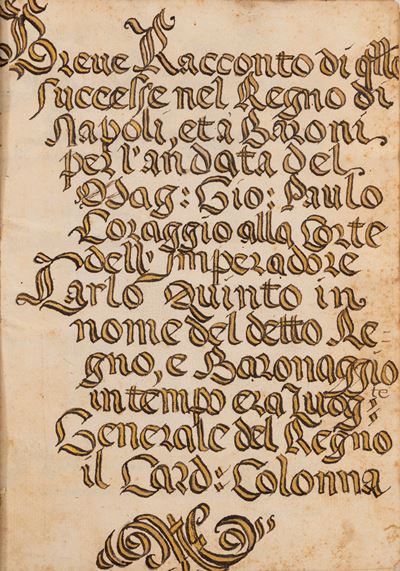 Breve Racconto di q̃llo
successe nel Regno di
Napoli, et à Baroni
per l'andata del
Mag: Gio: Paulo
Coraggio alla Corte
dell' Imperadore
Carlo Quinto in
nome del detto Re=
gno, e Baronaggio
in tempo era Luog:te
Generale del Regno
il Card: Colonna